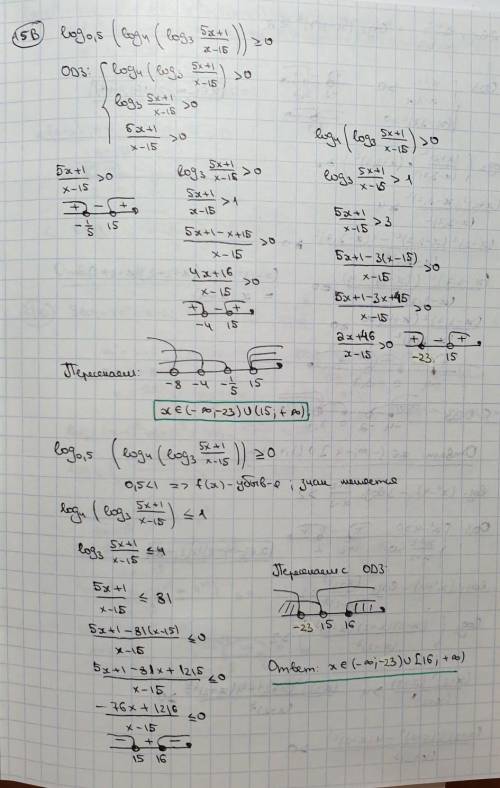 15В) log₀,₅ (log₄ (log₃ (5x+1)/(x-15))) ≥ 0
ОДЗ: { log₄ (log₃ (5x+1)/(x-15)) > 0
log₃ (5x+1)/(x-15) > 0
(5x+1)/(x-15) > 0
(5x+1)/(x-15) > 0
+ - +
-1/5 15
log₃ (5x+1)/(x-15) > 0
(5x+1)/(x-15) > 1
(5x+1-x+15)/(x-15) > 0
(4x+16)/(x-15) > 0
+ - +
-4 15
log₄ (log₃ (5x+1)/(x-15)) > 0
log₃ (5x+1)/(x-15) > 1
(5x+1)/(x-15) > 3
(5x+1-3(x-15))/(x-15) > 0
(5x+1-3x+45)/(x-15) > 0
(2x+46)/(x-15) > 0
+ - +
-23 15
Пересекаем:
-8 -4 -1/5 15
x∈(-∞;-23)∪(15;+∞)
log₀,₅ (log₄ (log₃ (5x+1)/(x-15))) ≥ 0
0,5<1 => f(x)-убыв-я ; знак меняется
log₄ (log₃ (5x+1)/(x-15)) ≤ 1
log₃ (5x+1)/(x-15) ≤ 4
(5x+1)/(x-15) ≤ 81
(5x+1-81(x-15))/(x-15) ≤ 0
(5x+1-81x+1215)/(x-15) ≤ 0
(-76x+1216)/(x-15) ≤ 0
- + -
15 16
Пересекаем с ОДЗ:
-23 15 16
Ответ: x∈(-∞;-23)∪[16;+∞)